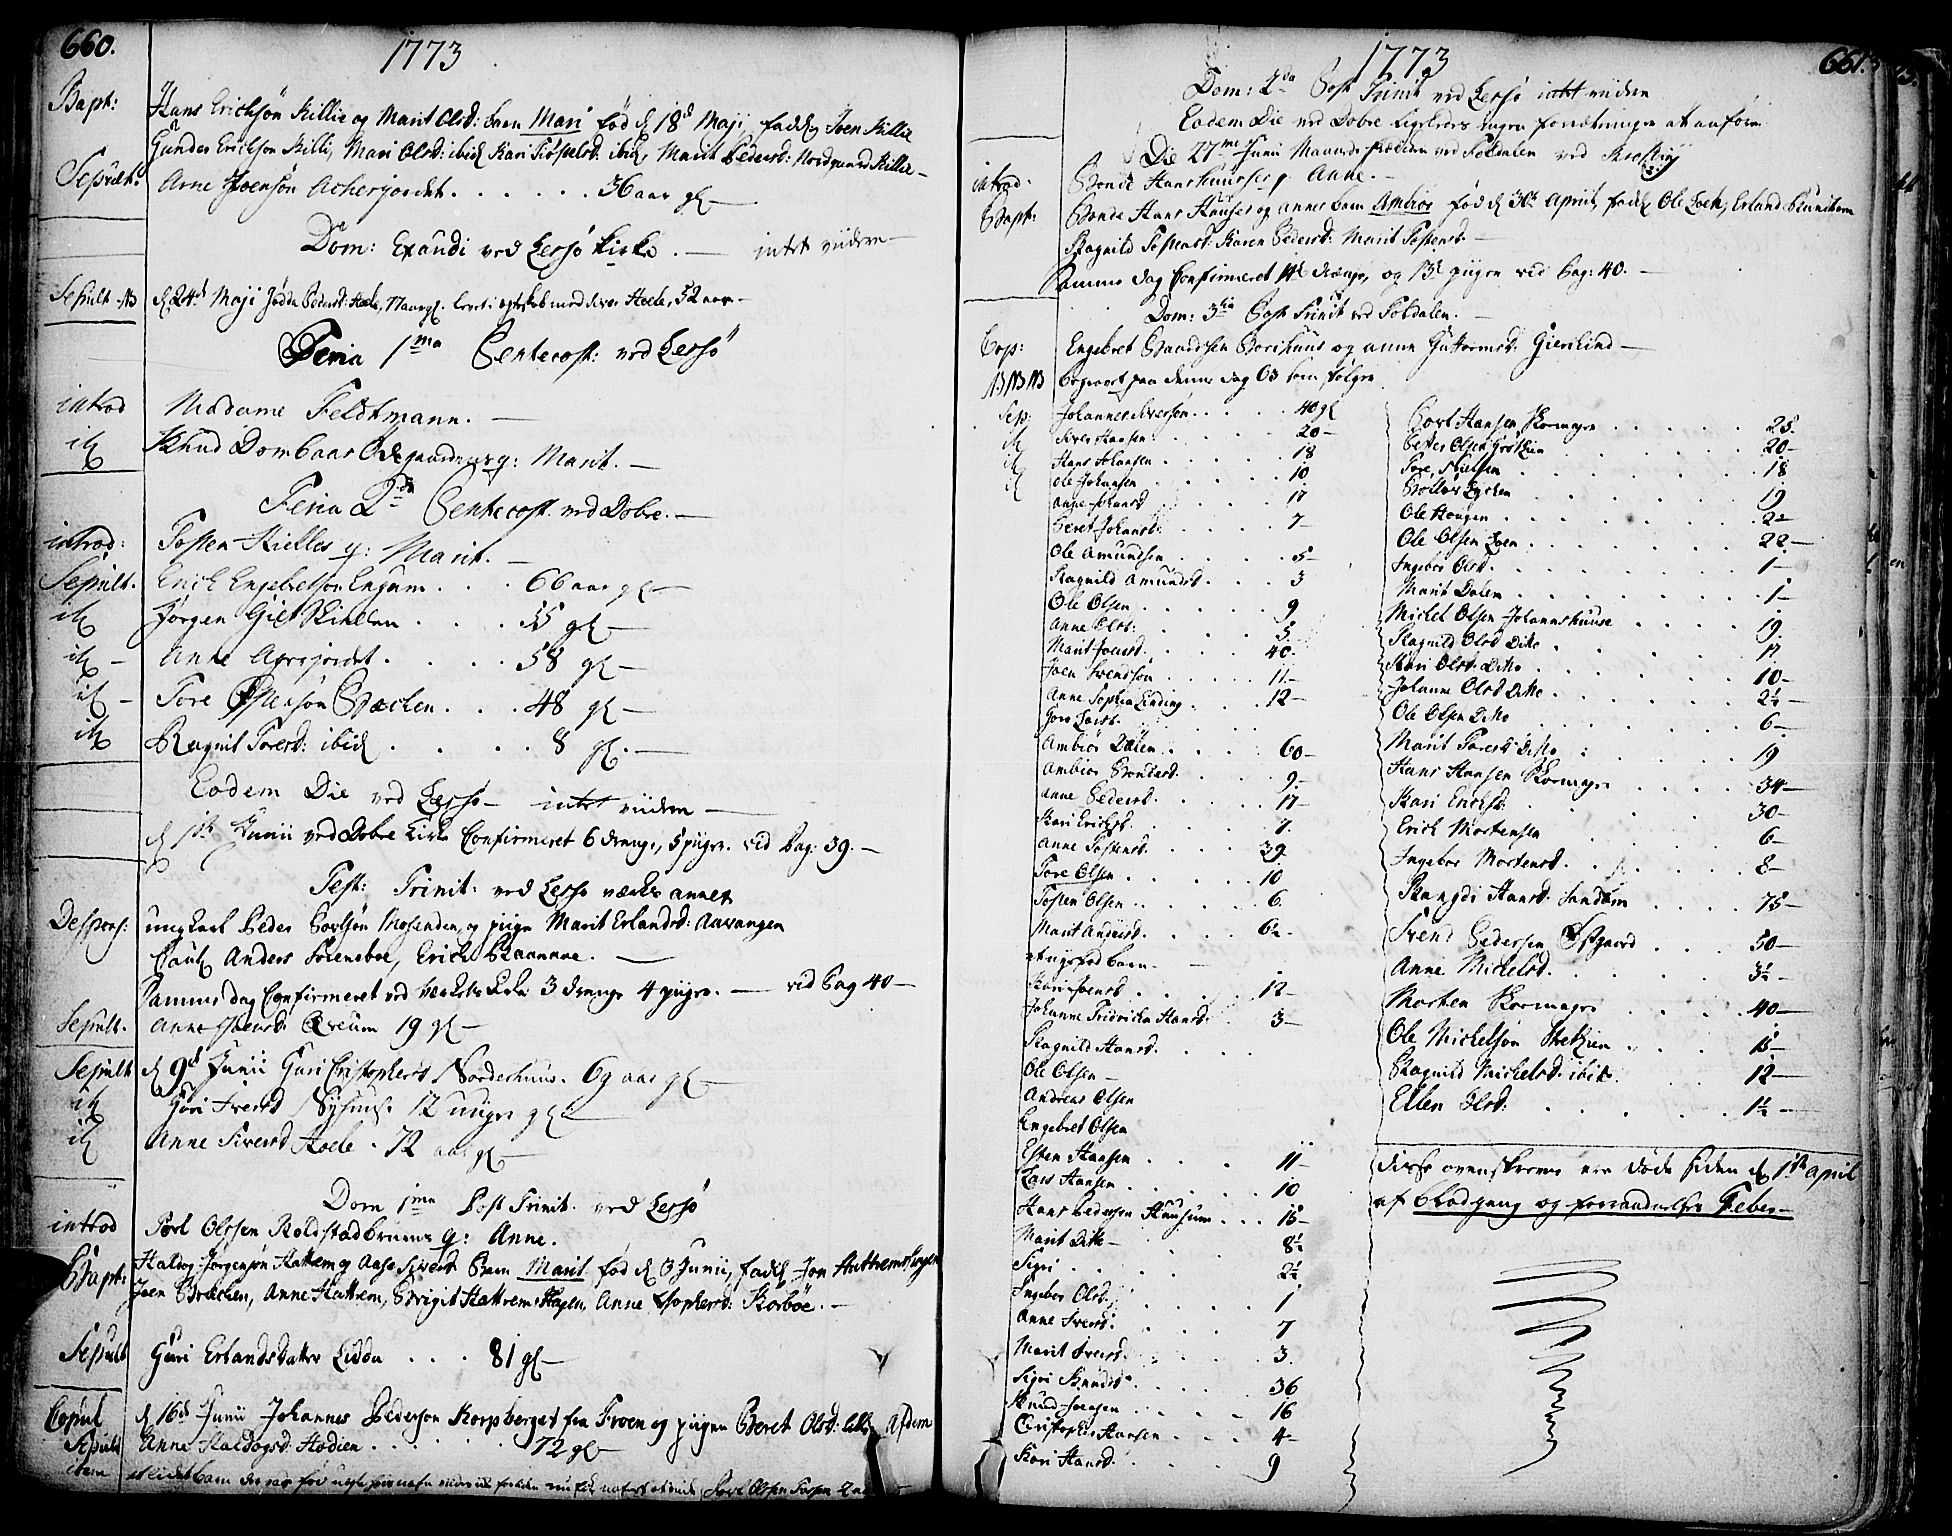 660.
1773
Bapt: Hans Erichsøn Killie og Marit Olsd: barn Mari fød d 18d Maji, fadd Joen Killie
Gunder Erichsøn Killi, Mari Olsd: ibid Kari Tostensd: ibid, Marit Pedersd: Nordgaard Killie
Sepult: Arne Joensøn Acherjordet . . . . . . 36 aar gl
Dom: Exaudi ved Lessø Kirke . intet viidere
Sepult NB d 24d Maji Jødda Pedersd: Hoele, 52 aar
Feria 1ma Pentecost: ved Lessø
introd Madame Feldtmann.
it Knud Dombaas Odegaardens q: Marit.
Feria 2da Pentecost. ved Dobre.
introd: Tosten Kielles q: Marit.
Sepult. Erich Engebretsøn Engum . . . 66 aar gl
it Jørgen Giet Kiellen . . . . 55 gl
it Anne Agerjordet . . . . . 58 gl
it Tore Ostensøn Bæcken . . . 48 gl
it Ragnil Toresd: ibid . . . . . 8 gl.
Eodem Die ved Lessø intet viidere
d 1ste Junii ved Dobre Kirke Confirmeret 6 drenge, 5 piiger. vid Pag: 39.
Fest: Trinit: ved Lessø værks annex
Despons: ungkarl Peder Poelsøn Mosenden og piige Marit Erlandsd: Aavangen
Caut Anders Sørensboe, Erich Raanaae.
Samme dag Confirmeret ved Værkets Kirke 3 drenge 4 piiger. vid Pag 40
Sepult. Anne Joensd. Øveum 19 gl
Sepult d 9d Junii Guri Cristophersd Norderhuus. 69 aar gl
it Guri Iversd Nyhuus. 12 uuger gl
it Anne Siversd Hoele . 72 aar gl
Dom 1ma Post Trinit. ved Lessø
introd Poel Olssen Roldstadbruens q: Anne.
Bapt: Haldog Jørgensøn Hattrem og Aase Siversd Barn Marit fød d 6 Junii, fadd Jon Hattremshagen
Joen Bræcken, Anne Hattrem, Birgit Hattremshagen, Anne Jophersd: Korbøe.
Sepult Guri Erlandsdatter Lidda . . . . 81 gl
Copul d 16d Junii Johannes Pedersøn Korpberget fra Froen og piigen Beret Olsd: Afdem
Sepult Anne Haldogsd: Hodien . . . . . . . 72 gl
item et lidet barn
1773
661.
Dom: 2da Post Trinit ved Lessø intet viidere
Eodem Die ved Dobre ligeledes ingen forretninger at anføre
Die 27me Junii ved Foldalen
introd. Bonde Hans Huuses q. Anne.
Bapt: Bonde Hans Huuses og Annes barn Ambiør fød d 30te April, fadd Ole Loch, Erland
Ragnild Tostensd. Karen Pedersd: Marit Tostensd.
Samme dag Confirmeret 14 drenge, og 13 piiger vid Pag: 40.
Dom: 3tia Post Trinit ved Foldalen.
Cop: Engebret Baardsen Borkhuus og Anne Guttormsd: Gierslind
NB NB NB begravet paa denne dag 63 som følger
Sep: Johannes Iversøn . . . . . 40 gl
it Siver Hansen . . . . . 20
it Hans Johansen . . . . . 18
it Ole Johansen . . . . . 10
Anne Johansd . . . . . 17
Beret Johansd: . . . . 7
Ole Amundsen . . . . . 5
Ragnild Amundsd . . . . 3
Ole Olsen . . . . . 9
Anne Olsd: . . . . 5
Marit Joensd . . . . 40.
Joen Svendsøn . . . . . 11
Anne Sophia Linding . . . . 12
Goro Larsd.
Ambiør Dalen . . . . 60
Ambiør Brendsd . . . . 9.
Anne Pedersd . . . . . 17
Kari Erichsd . . . . . 7.
Anne Tostensd . . . . 39.
Tore Olsen . . . . . 10
Tosten Olsen . . . . . 6
Marit Andersd . . . . 6½
et ugifød barn
Kari Joensd . . . . . 12
Johanne Fridricha Hansd . 3
Ragnild Hansd . . . .
Ole Olsen
Andreas Olsen
Engebret Olsen
Esten Hansen . . . . 11
Lars Hansen . . . . . 10
Hans Pedersen Huusum . . . 15
Marit Ditto 8½
Sigri . . . . . 2½
Ingebor Olsd . . . . . 1
Anne Iversd . . . . . 7
Marit Iversd . . . . . 3.
Sigri Knudsd . . . . . 36
Knud Joensen . . . . . 16
Christopher Hansen . . . . 4
Kari Hansd . . . . 9
Poel Hansen Skomager . . . . . 25.
Peder Olsen Grøtlien . . . . 20
Tore Nielsen . . . . . 18
Ole Haugen . . . . . . 2½
Ole Olsen Loen . . . . . . 22.
Ingebor Olsd . . . . . . 1
Marit Dalen . . . . . . 1
Michel Olsen Johannshuuse . . . . 19
Ragnild Olsd Ditto . . . . 17
Kari Olsd: Ditto . . . . . 10
Johanne Olsd Ditto . . . . . 2½
Ole Olsen Ditto . . . . . 6
Marit Toresd: Ditto . . 19
Hans Hansen Skomager . . . . 34
Kari Erichsd . . . . . 30
Erich Mortensen . . . . 6
Ingebor Mortensd . . . . 8
Rangdi Hansd. Sandum . . . . 75
Svend Pedersen Østgaard . . . 50
Anne Michelsd . . . . . 3½
Morten Skomager . . . . . 40
Ole Michelsøn Streitlien . . . . 15
Ragnild Michelsd. ibid. . . . 12
Ellen Olsd: . . . . . . 1½
disse ovenskrevne ere døde siden d 1ste April
af blodgang og forraadnelses Feber